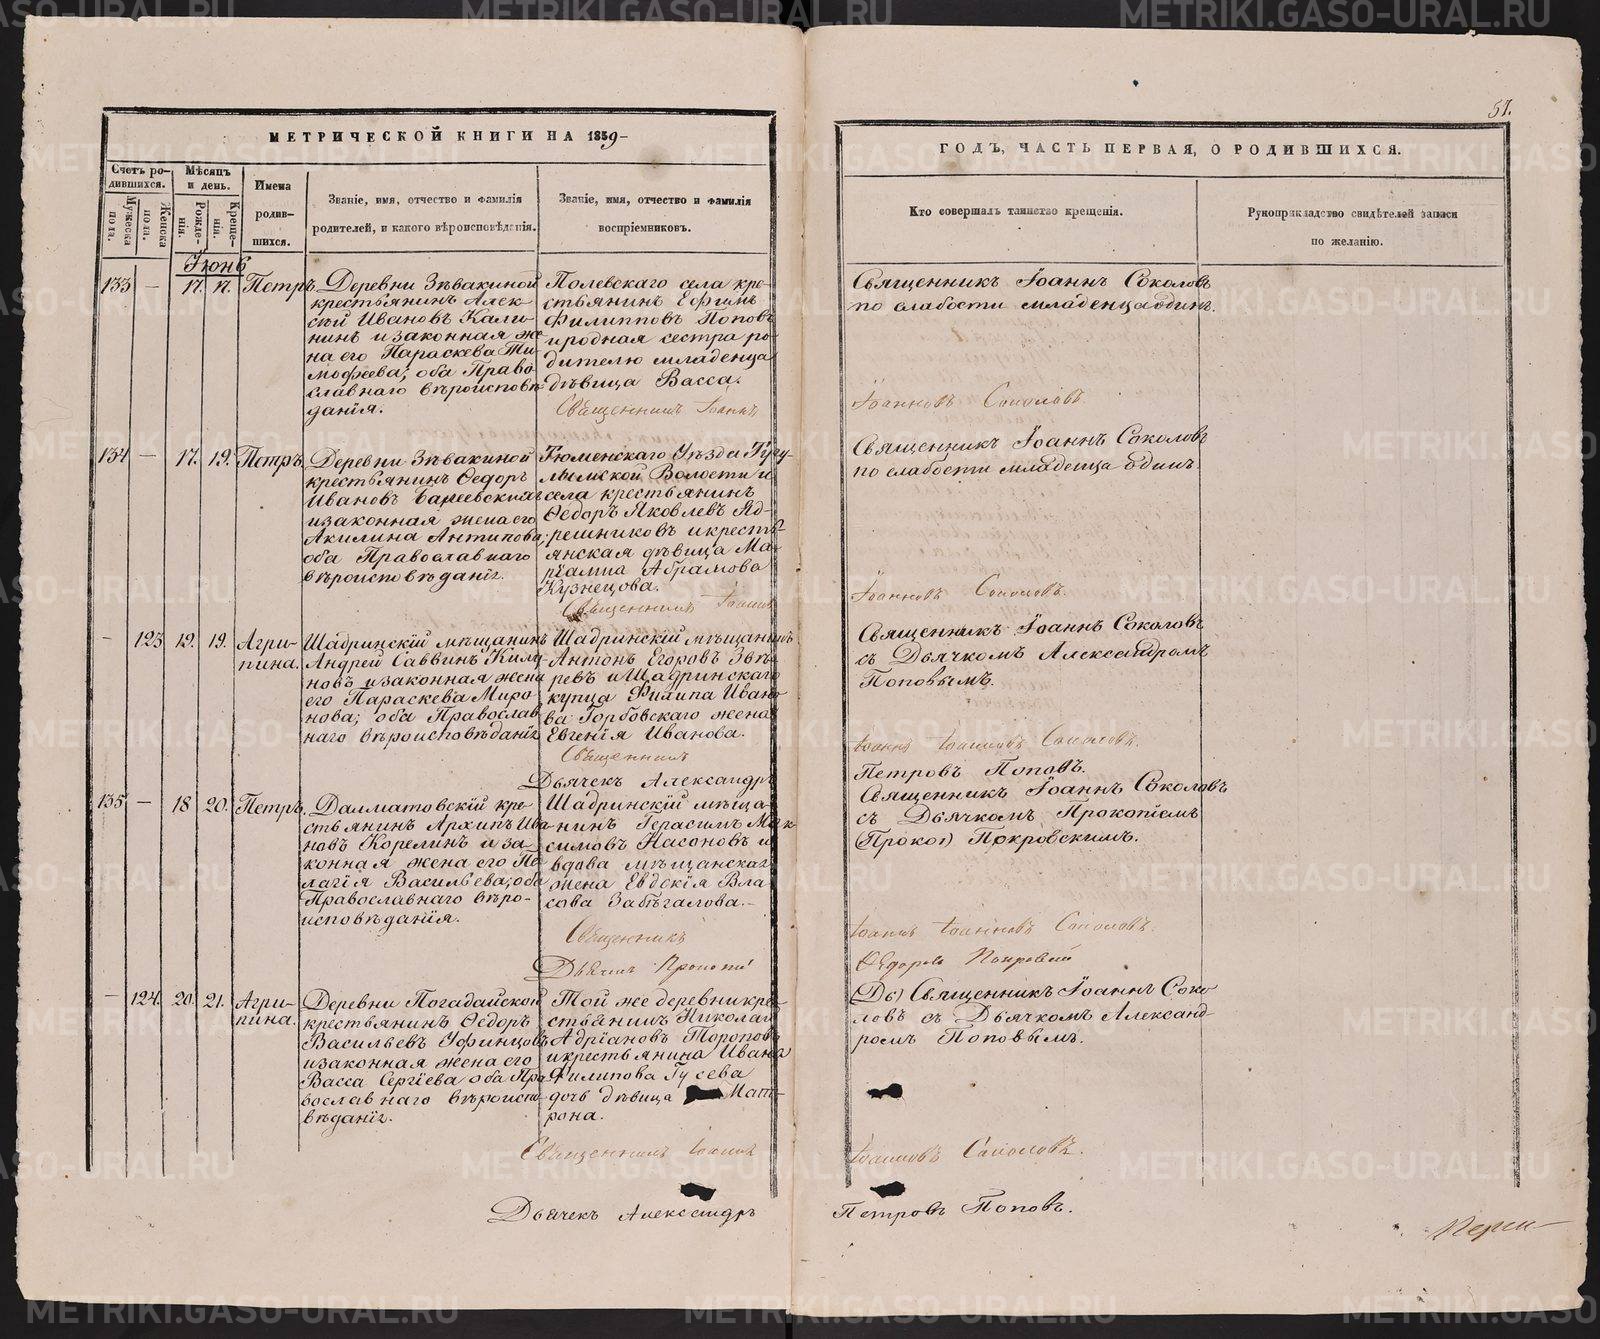 57.
МЕТРИЧЕСКОЙ КНИГИ НА 1859
ГОДЪ, ЧАСТЬ ПЕРВАЯ, О РОДИВШИХСЯ.
Счетъ ро-
дившихся.
Мужеска
пола.
Женска
пола.
Мѣсяцъ
и день.
Рожде-
нія.
Креще-
нія.
Имена
родив-
шихся.
Званіе, имя, отчество и фамилія
родителей, и какого вѣроисповѣданія.
Званіе, имя, отчество и фамилія
воспріемниковъ.
Кто совершалъ таинство крещенія.
Рукоприкладство свидѣтелей записи
по желанію.
Іюнь
133 — 17. 17. Петръ.
Деревни Зѣвакиной
крестьянинъ Алек-
сѣй Ивановъ Кали-
нинъ и законная же-
на его Параскева Ти-
мофеева; оба Право-
славнаго вѣроисповѣ-
данія.
Полевскаго села кре-
стьянинъ Ефимъ
Филипповъ Поповъ
и родная сестра ро-
дителю младенца
дѣвица Васса.
Священникъ Іоаннъ
Священникъ Іоаннъ Соколовъ
по слабости младенца одинъ.
Іоанновъ Соколовъ
134 — 17. 19. Петръ.
Деревни Зѣвакиной
крестьянинъ Ѳедоръ
Ивановъ
и законная жена его
Акилина Антипова;
оба Православнаго
вѣроисповѣданія.
Тюменскаго Уѣзда Тугу-
лымской Волости и
села крестьянинъ
Ѳедоръ Яковлевъ Яд-
решниковъ и кресть-
янская дѣвица Ма-
ріамна Абрамова
Кузнецова.
Священникъ Іоаннъ
Священникъ Іоаннъ Соколовъ
по слабости младенца одинъ.
Іоанновъ Соколовъ.
— 123 19. 19. Агри-
пина.
Шадринскій мѣщанинъ
Андрей Саввинъ
и законная жена
его Параскева Миро-
нова; оба Православ-
наго вѣроисповѣданія
Шадринскій мѣщанинъ
Антонъ Егоровъ Звѣ-
ревъ и Шадринскаго
купца Филипа Ивано-
ва Горбовскаго жена
Евгенія Иванова.
Священникъ
Дьячекъ Александръ
Священникъ Іоаннъ Соколовъ
съ Дьячкомъ Александромъ
Поповымъ.
Іоаннъ Іоанновъ Соколовъ.
Петровъ Поповъ.
135 — 18 20. Петръ.
Далматовскій кре-
стьянинъ Архипъ Ива-
новъ Корелинъ и за-
конная жена его Пе-
лагія Васильева; оба
Православнаго вѣро-
исповѣданія.
Шадринскій мѣща-
нинъ Герасимъ Мак-
симовъ Насоновъ и
вдова мѣщанская
жена Евдокія Вла-
сова Забѣгалова.
Священникъ
Дьячекъ Прокопій
Священникъ Іоаннъ Соколовъ
съ Дьячкомъ Прокопіемъ
(Прокоп) Покровскимъ.
Іоаннъ Іоанновъ Соколовъ.
Ѳедоровъ Покровскій
— 124. 20. 21. Агри-
пина.
Деревни Погадайской
крестьянинъ Ѳедоръ
Васильевъ Уфинцовъ
и законная жена его
Васса Сергіева оба Пра-
вославнаго вѣроиспо-
вѣданія.
Той же деревни кре-
стьянинъ Николай
Адріановъ Тороповъ
и крестьянина Ивана
Филипова Гусева
дочь дѣвица Мат-
рона.
Священникъ Іоаннъ
Дьячекъ Александръ
(Дь) Священникъ Іоаннъ Соко-
ловъ съ Дьячкомъ Александ-
ромъ Поповымъ.
Іоанновъ Соколовъ.
Петровъ Поповъ.
METRIKI.GASO-URAL.RU